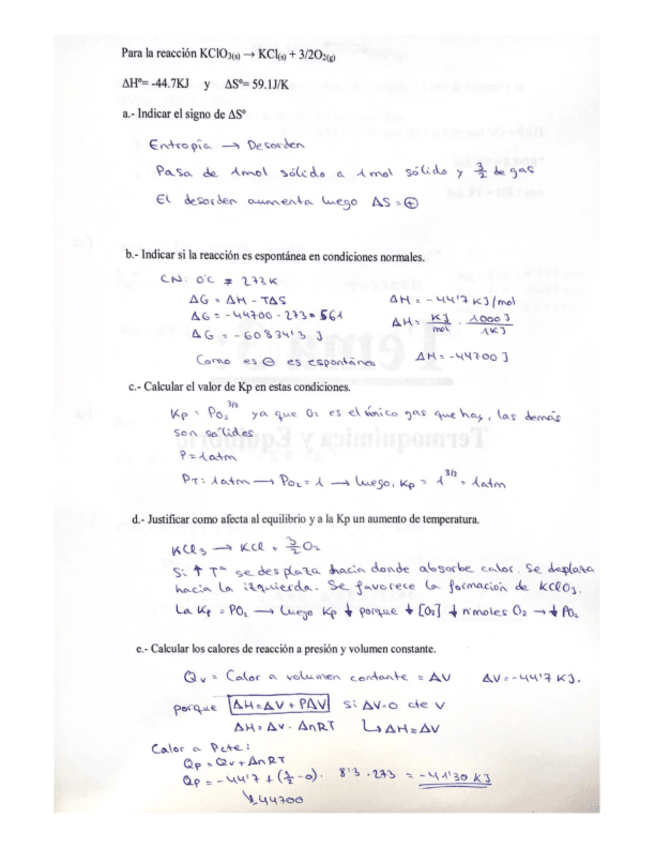 Para la reacción KClO3(s) → KCl(s) + 3/2O2(g)
ΔHº= -44.7KJ y ΔSº= 59.1J/K
a.- Indicar el signo de ΔSº
Entropía → Desorden
Pasa de 1mol sólido a 1 mol sólido y 3/2 de gas
El desorden aumenta luego ΔS = ⊕
b.- Indicar si la reacción es espontánea en condiciones normales.
CN: 0ºC = 273K
ΔG = ΔH - TΔS ΔH = -44'7 KJ/mol
ΔG = -44700 - 273 · 561 ΔH = KJ/mol · 1000 J/1KJ
ΔG = -60834'3 J
Como es ⊖ es espontánea ΔH = -44700 J
c.- Calcular el valor de Kp en estas condiciones.
Kp = PO2^3/2 ya que O2 es el único gas que hay, las demás
son sólidos
P = 1atm
PT = 1atm → PO2 = 1 → luego, Kp = 1^3/2 = 1atm
d.- Justificar como afecta al equilibrio y a la Kp un aumento de temperatura.
KCl3 → KCl + 3/2 O2
Si ↑ Tª se desplaza hacia donde absorbe calor. Se desplaza
hacia la izquierda. Se favorece la formación de KClO3.
La Kp = PO2 → luego Kp ↓ porque ↓ [O2] ↓ nºmoles O2 → ↓ PO2
e.- Calcular los calores de reacción a presión y volumen constante.
Qv = Calor a volumen constante = ΔV ΔV = -44'7 KJ.
porque ΔH = ΔV + PΔV si ΔV=0 cte V
ΔH = ΔV · ΔnRT ↳ ΔH = ΔV
Calor a Pcte:
Qp = Qv + ΔnRT
Qp = -44'7 + (3/2 - 0) · 8'3 · 273 = -41'30 KJ
↘ 44700